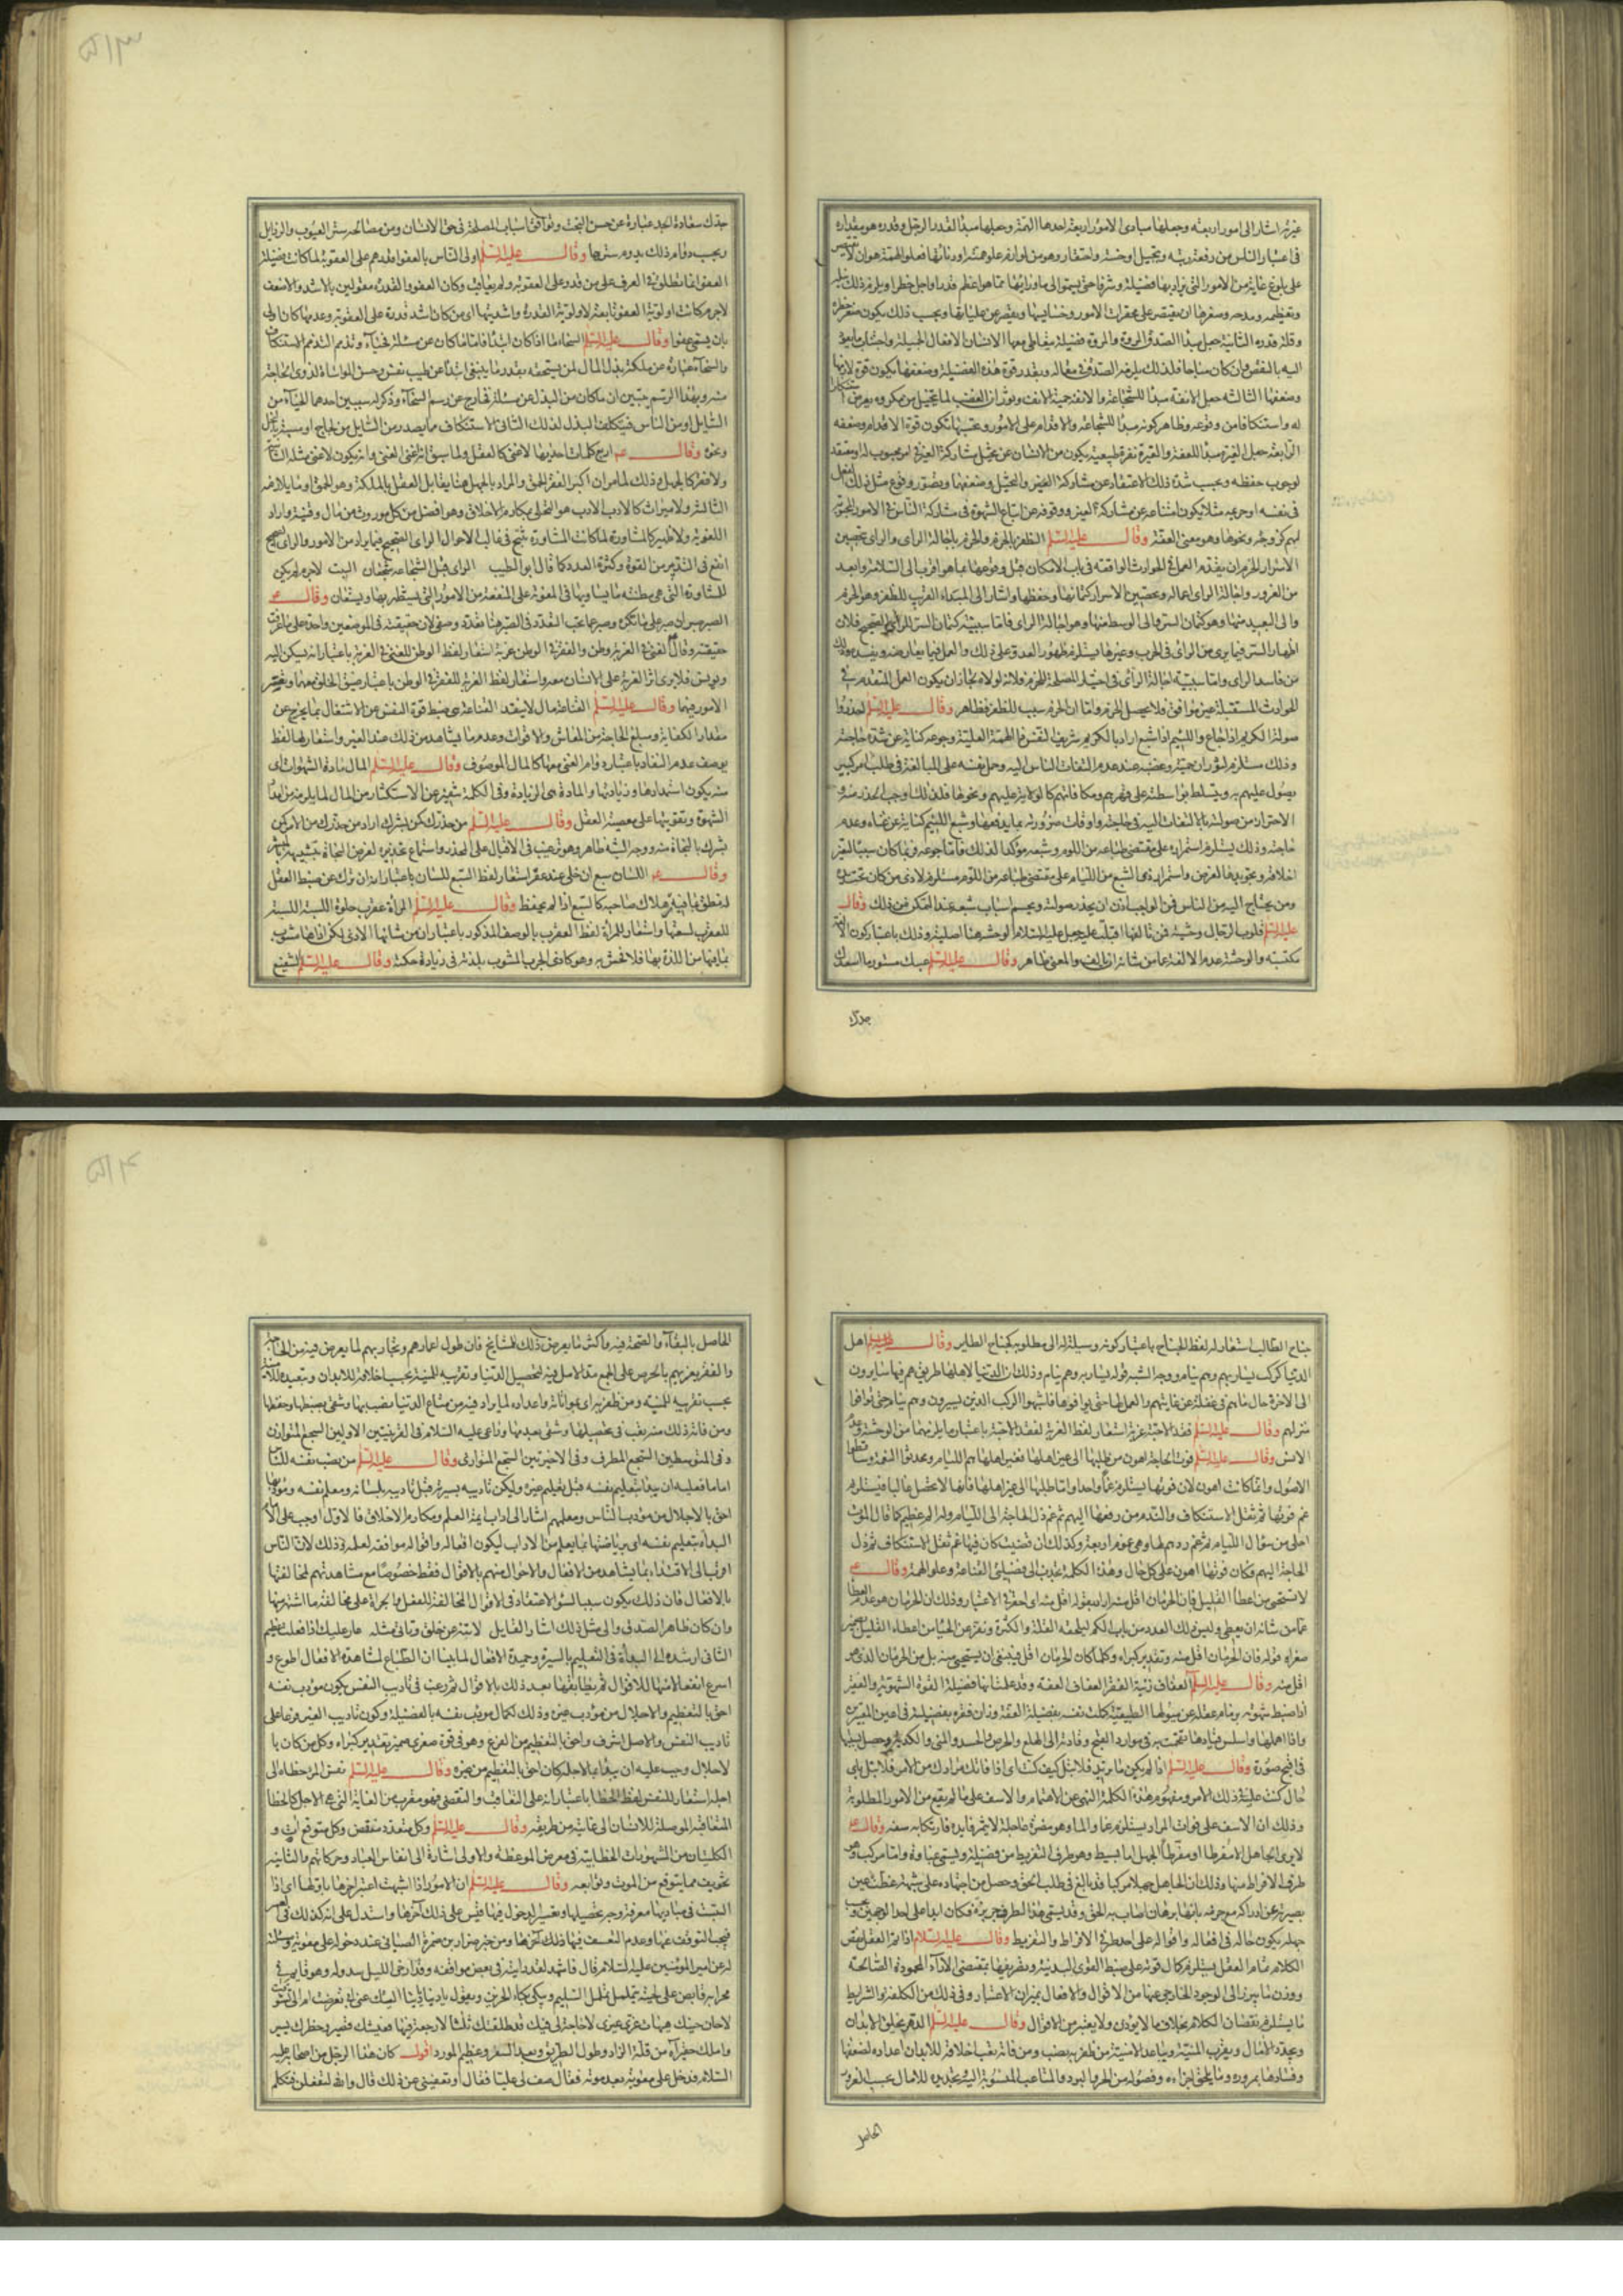 غيرته اشار الى امور اربعة وجعلها مبادى لامور اربعة احدها الهمة وجعلها مبدأ لقدر الرجل وقدره هو مقداره
فى اعتبار الناس من رفعة رتبة وتبجيل او خسة واحتقار وهو من لوازم علو همته او دنائتها فعلو الهمة هو ان لا
على بلوغ غاية من الامور التى يزداد بها فضيلة وشرفا حتى يسموا الى ماورائها مما هو اعظم قدرا واجل خطرا ويلزم ذلك
وتعظيمه ومدحه وصغرها ان يقتصر على محقرات الامور وخسايسها ويقصر عن علياتها وبحسب ذلك يكون صغر خطره
وقلة قدره الثانية جعل مبدأ الصدق المروة والمروة فضيلة يتعاطى معها الانسان الافعال الجميلة واجتناب ما يعود
اليه بالنقص وان كان مباحا فلذلك يلزمه الصدق فى مقاله وبقدر قوة هذه الفضيلة وضعفها يكون قوة لازمها
وضعفها الثالثة جعل الانفة مبدأ للشجاعة والانفة حمية الانف وثوران الغضب لما يتخيل من مكروه يعرض
له واستنكافا من وقوعه وظاهر كونه مبدأ للشجاعة والاقدام على الامور وبحسبها تكون قوة الاقدام وضعفه
الرابعة جعل الغيرة مبدأ للعفة والغيرة نفرة طبيعية يكون من الانسان عن تخيل مشاركة الغير فى امر محبوب له ومعتقد
لوجوب حفظه وبحسب شدة ذلك الاعتقاد عن مشاركة الغير والتخيل وضعفها وتصور وقوع مثل ذلك
فى نفسه او حرمه مثلا يكون امتناعه عن مشاركة الغير ووقوفه عن اتباع الشهوة فى مشاركة الناس فى الامور
لهم كزوجة ونحوها وهو معنى العفة وقال عليه السلم الظفر بالحزم والحزم باجالة الراى والراى بتحصين
الاسرار الحزم ان يقدم العمل فى الحوادث الواقعة فى باب الامكان قبل وقوعها بما هو اقرب الى السلامة وابعد
من الغرور واجالة الراى اعماله وتحصين الاسرار كتمانها وحفظها واشار الى المبداء القريب للظفر وهو الحزم
والى البعيد منها وهو كتمان السر والى الوسط منها وهو اجالة الراى فاما سببية كتمان السر للراى الصحيح فلان
اظهار السر فيما يرى من الراى فى الحرب وغيرها يستلزم ظهور العدو على ذلك والعمل فيما يعارضه ويفسده
من فاسد الراى واما سببية اجالة الرأى فى اختيار المصلحة للحزم فلانه لولاه لجاز ان يكون العمل المتقدم فى
الحوادث المستقبلة غير موافق ولا يحصل الحزم واما ان الحزم سبب للظفر فظاهر وقال عليه السلم احذروا
صولة الكريم اذا جاع واللئيم اذا شبع اراد بالكريم شريف النفس ذا الهمة العلية وجوعه كناية عن شدة حاجته
وذلك مستلزم لثوران حميته وغضبه عند عدم التفات الناس اليه وحمل نفسه على المبالغة فى طلب امر كبير
يصول عليهم به ويتسلط بواسطته على قهرهم ومكافاتهم كالولاية عليهم ونحوها فلذلك وجب الحذر منه و
الاحتراز من صولته بالالتفات اليه فى حاجته واوقات ضرورته بما يدفعها وشبع اللئيم كناية عن غناه وعدم
حاجته وذلك يستلزم استمراره على مقتضى طباعه من اللوم وشبعه مؤكدا لذلك فاما جوعه فربما كان سببا لتغير
اخلاقه وتجويدها لغرض واستمراره فى الشبع من اللئيام على مقتضى طباعه من اللوم مستلزم لاذى من كان تحت يده
ومن يحتاج اليه من الناس فمن الواجب اذن ان يحذر صولته وبحسم اسباب شبعه عند التمكن من ذلك وقال
عليه السلم قلوب الرجال وحشية فمن تالفها اقبلت عليه جعل عليه السلام الوحشة هنا اصلية وذلك باعتبار كون الالفة
مكتسبة والوحشة عدم الالفة عما من شانه ان يالف والمعنى ظاهر وقال عليه السلم عيبك مستور ما اسعدك
جدك
جدك سعادة الجد عبارة عن حسن البخت وتوافق اسباب المصلحة فى حق الانسان ومن مصالحه ستر العيوب والرذايل
وبحسب دوام ذلك يدوم سترها وقال عليه السلم اولى الناس بالعفو اقدرهم على العقوبة لما كانت فضيلة
العفو انما تطلق فى العرف على من قدر على العقوبة ولم يعاقب وكان العفو والقدرة مقولين بالاشد والاضعف
لاجرم كانت اولوية العفو تابعة لاولوية القدرة واشديتها اى من كان اشد قدرة على العقوبة وعدمها كان اولى
بان يسمى عفوا وقال عليه السلم السخاء ما اذا كان ابتداء فاما ما كان عن مسئلة فحياء وتذمم التذمم الاستنكاف
والسخاء عبارة عن ملكة بذل المال لمن يستحقه بقدر ما ينبغى ابتداء عن طيب نفس وحسن المواساة لذوى الحاجة
منه وبهذا الرسم يتبين ان ما كان من البذل عن مسئلة فخارج عن رسم السخاء وذكر له سببين احدهما الحياء من
السائل او من الناس فيتكلف البذل لذلك الثانى الاستنكاف مما يصدر من السايل من لجاج او سبة ببخل
ونحوه وقال عم اربع كلمات احديها لا غنى كالعقل ولما سبق انه اغنى الغنى وانه يكون لا غنى مثله الثانية
ولا فقر كالجهل وذلك لما مر ان اكبر الفقر الحمق والمراد بالجهل هنا يقابل العقل بالملكة وهو الحمق وما يلازمه
الثالثة ولا ميراث كالادب الادب هو التحلى بمكارم الاخلاق وهو افضل من كل موروث من مال وقنية واراد
اللغوية ولا ظهير كالمشاورة لما كانت المشاورة تنتج فى غالب الاحوال الراى الصحيح فيما يراد من الامور والراى الصحيح
انفع فى التدبير من القوة وكثرة العدد كما قال ابو الطيب الراى قبل الشجاعة شجعان البيت لاجرم لم يكن
للمشاورة التى هى مظنته ما يساويها فى المعونة على المنفعة من الامور التى يستظهر بها ويستعان وقال عم
الصبر صبران صبر على ما تكره وصبر عما تحب التعدد فى الصبر هنا تعدد وصفى لان حقيقته فى الموضعين واحدة على ما عرفت
حقيقته وقال عم الغنى فى الغربة وطن والفقر فى الوطن غربة استعار لفظ الوطن للغنى فى الغربة باعتبار انه يسكن اليه
ويونس فلا يرى اثر الغربة على الانسان معه واستعار لفظ الغربة للفقر فى الوطن باعتبار ضيق الخلق معها وتعسر
الامور فيها وقال عليه السلم القناعة مال لا ينفد القناعة هى ضبط قوة النفس عن الاشتغال بما يخرج عن
مقدار الكفاية ومبلغ الحاجة من المعاش والاقوات وعدم ما يشاهد من ذلك عند الغير واستعار لها لفظ
بوصف عدم النفاد باعتبار دوام الغنى معها كالمال الموصوف وقال عليه السلم المال مادة الشهوات اى
منه يكون استمدادها وزيادتها والمادة هى الزيادة وفى الكلمة تنفير عن الاستكثار من المال لما يلزمه من امداد
الشهوة وتقويتها على معصية العقل وقال عليه السلم من حذرك كمن بشرك اراد من حذرك من الامر كمن
بشرك بالنجاة منه ووجه الشبه ظاهر وهو ترغيب فى الاقبال على المحذر واستماع تحذيره لغرض النجاة بتشبيهه بالمبشر
وقال عم اللسان سبع ان خلى عنه عقر استعار لفظ السبع للسان باعتبار انه ان ترك عن ضبط العقل
له نطق بما فيه هلاك صاحبه كالسبع اذا لم يحفظ وقال عليه السلم المرأة عقرب حلوة اللسبة اللسبة
للعقرب لسعتها واستعار للمرأة لفظ العقرب بالوصف المذكور باعتبار ان من شانها الاذى لكن اذاها مشوب
بما فيها من اللذة بها فلا تحس به وهو كاذى الجرب المشوب بلذته فى زيادة حكه وقال عليه السلم الشفيع
جناح الطالب استعار له لفظ الجناح باعتبار كونه وسيلة له الى مطلوبه كجناح الطاير وقال عليه السلم اهل
الدنيا كركب يسار بهم وهم نيام ووجه الشبه قوله يسار بهم وهم نيام وذلك ان الدنيا لاهلها طريق هم فيها سايرون
الى الاخرة حال ما هم فى غفلة عن غايتهم والعمل لها حتى يوافوها فاشبهوا الركب الذين يسيرون وهم نيام حتى يوافوا
منزلهم وقال عليه السلم فقد الاحبة غربة استعار لفظ الغربة لفقد الاحبة باعتبار ما يلزمهما من الوحشة وعدم
الانس وقال عليه السلم فوت الحاجة اهون من طلبها الى غير اهلها فغير اهلها هم اللئام ومحدثوا النعمة وساقطوا
الاصول وانما كانت اهون لان فوتها يستلزم غما واحدا واما طلبها الى غير اهلها فانها لا تحصل غالبا فيستلزم
غم فوتها ثم ثقل الاستنكاف والندم من رفعها اليهم ثم غم ذل الحاجة الى اللئام وله الم عظيم كما قال الموت
احلى من سؤال اللئام ثم غم ردهم لها وهى غموم اربعة وكذلك ان قضيت كان فيها غم ثقل الاستنكاف ثم ذل
الحاجة اليهم فكان فوتها اهون على كل حال وهذه الكلمة تجذب الى فضيلتى القناعة وعلو الهمة وقال عم
لا تستحى من اعطاء القليل فان الحرمان اقل منه اراد بقوله اقل منه اى احقر فى الاعتبار وذلك ان الحرمان هو عدم العطاء
عما من شانه ان يعطى وليس ذلك العدد من باب الكم ليلحقه القلة والكثرة ونفر عن الحياء من اعطاء القليل بضمير
صغراه قوله فان الحرمان اقل منه وتقدير كبراه وكلما كان الحرمان اقل فينبغى ان يستحيى منه بل من الحرمان الذى هو
اقل منه وقال عليه السلم العفاف زينة الفقر العفاف العفة وقد علمت انها فضيلة القوة الشهوية والفقير
اذا ضبط شهوته بزمام عقله عن ميولها الطبيعية كملت نفسه بفضيلة العفة وزان فقره بفضيلته فى اعين المعتبرين
واذا اهملها واسلس قيادها تقحمت به فى موارد القبح وقادته الى الهلع والحرص والحسد والمنى والكدية وحصل بسببها
فى اقبح صورة وقال عليه السلم اذا لم يكن ما تريد فلا تبل كيف كنت اى اذا فاتك مرادك من الامر فلا تبل باى
حال كنت عليه فى ذلك الامر ومفهوم هذه الكلمة النهى عن الاهتمام والاسف على ما لم يقع من الامور المطلوبة
وذلك ان الاسف على فوات المراد يستلزم غما والما وهو مضرة عاجلة لا يثمر فايدة فارتكابه سفه وقال عم
لا يرى الجاهل الا مفرطا او مفرطا الجهل اما بسيط وهو طرف التفريط من فضيلة ويسمى غباوة واما مركب وهو
طرف الافراط منها وذلك ان الجاهل جهلا مركبا قد بالغ فى طلب الحق وحصل من اجتهاده على شبهة غطت عين
بصيرته عن ادراكه مع جزمه بانها برهان اصاب به الحق وقد يسمى هذا الطرف جربزة فكان ابدا على احد الوجهين وبحسب
جهله يكون حاله فى افعاله واقواله على احد طرفى الافراط والتفريط وقال عليه السلام اذا تم العقل نقص
الكلام تمام العقل يستلزم كمال قوته على ضبط القوى البدنية وتصريفها بمقتضى الآراء المحمودة الصالحة
ووزن ما يبرز الى الوجود الخارجى عنها من الاقوال والافعال بميزان الاعتبار وفى ذلك من الكلفة والشرايط
ما يستلزم نقصان الكلام بخلاف ما لا يوزن ولا يعتبر من الاقوال وقال عليه السلم الدهر يخلق الابدان
ويجدد الامال ويقرب المنية ويباعد الامنية من ظفر به نصب ومن فاته تعب اخلاقه للابدان اعداده لضعفها
وفسادها بمروره وما يلحق اجزاءه وفصوله من الحر والبرد والمتاعب المنسوبة اليه وتجديده للامال بحسب الغرور
الحاصل
الحاصل بالبقاء والصحة فيه واكثر ما يعرض ذلك للمشايخ فان طول اعمارهم وتجاربهم لما يعرض فيه من الحاجة
والفقر يغريهم بالحرص على الجمع ومد الامل فيه لتحصيل الدنيا وتقريبه للمنية بحسب اخلاقه للابدان وتبعيده للامنية
بحسب تقريبه للمنية ومن ظفر به اى بمواتاته واعداده لما يراد فيه من متاع الدنيا نصب بها وشقى بضبطها وحفظها
ومن فاته ذلك منه تعب فى تحصيلها وشقى بعدمها وراعى عليه السلام فى القرينتين الاوليين السجع المتوازن
وفى المتوسطين السجع المطرف وفى الاخيرتين السجع المتوازى وقال عليه السلم من نصب نفسه للناس
اماما فعليه ان يبدأ بتعليم نفسه قبل تعليم غيره وليكن تاديبه بسيرته قبل تاديبه بلسانه ومعلم نفسه ومؤدبها
احق بالاجلال من مؤدب الناس ومعلمهم اشار الى اداب ائمة العلم ومكارم الاخلاق فالاول اوجب على الامام
البداة بتعليم نفسه اى برياضتها بما يعلم من الاداب ليكون افعاله واقواله موافقة لعلمه فى ذلك لان الناس
اقرب الى الاقتداء بما يشاهد من الافعال والاحوال منهم بالاقوال فقط خصوصا مع مشاهدتهم لمخالفتها
بالافعال فان ذلك يكون سببا لسوء الاعتقاد فى الاقوال المخالفة للفعل والجرأة على مخالفة ما اشتهر منها
وان كان ظاهر الصدق والى مثل ذلك اشار القايل لا تنه عن خلق وتاتى مثله عار عليك اذا فعلت عظيم
الثانى ارشده الى البدأة فى التعليم بالسيرة وحميدة الافعال لما بينا ان الطباع لمشاهدة الافعال اطوع و
اسرع انفعالا منها للاقوال ثم يطابقها بعد ذلك بالاقوال ثم رغب فى تاديب النفس بكون مؤدب نفسه
احق بالتعظيم والاجلال من مؤدب غيره وذلك لكمال مؤدب نفسه بالفضيلة وكون تاديب الغير فرعا على
تاديب النفس والاصل اشرف واحق بالتعظيم من الفرع وهو فى قوة صغرى ضمير تقدير كبراه وكل من كان با
لاجلال وجب عليه ان يبدأ بما لاجله كان احق بالتعظيم من غيره وقال عليه السلم نفس المرء خطاه الى
اجله استعار للنفس لفظ الخطا باعتبار انه على التعاقب والتقضى فهو مقرب من الغاية التى هى الاجل كالخطا
المتعاقبة الموصلة للانسان الى غايته من طريقه وقال عليه السلم وكل معدود منقض وكل متوقع آت و
الكلمتان من المشهورات الخطابية فى معرض الموعظة والاولى اشارة الى انفاس العباد وحركاتهم والثانية
تخويف مما يتوقع من الموت وتوابعه وقال عليه السلم ان الامور اذا اشتبهت اعتبر اخرها باولها اى اذا
التبست فى مباديها معرفة وجه تحصيلها وتعسر الدخول فيها فقس على ذلك آخرها واستدل على انه كذلك فى
فيجب التوقف عنها وعدم التعسف فيها وذلك ومن خبر ضرار بن ضمرة الضبابى عند دخوله على معوية ومسئلته
له عن امير المؤمنين عليه السلام قال فاشهد لقد رايته فى بعض مواقفه وقد ارخى الليل سدوله وهو قايم فى
محرابه قابض على لحيته يتململ تململ السليم ويبكى بكاء الحزين ويقول يا دنيا يا دنيا اليك عنى ابى تعرضت ام الى تشوقت
لا حان حينك هيهات غرى غيرى لا حاجة لى فيك قد طلقتك ثلثا لا رجعة فيها فعيشك قصير وخطرك يسير
واملك حقير آه من قلة الزاد وطول الطريق وبعد السفر وعظيم المورد اقول كان هذا الرجل من اصحابه عليه
السلام فدخل على معوية بعد موته فقال صف لى عليا فقال او تعفينى عن ذلك قال والله لتفعلن فتكلم